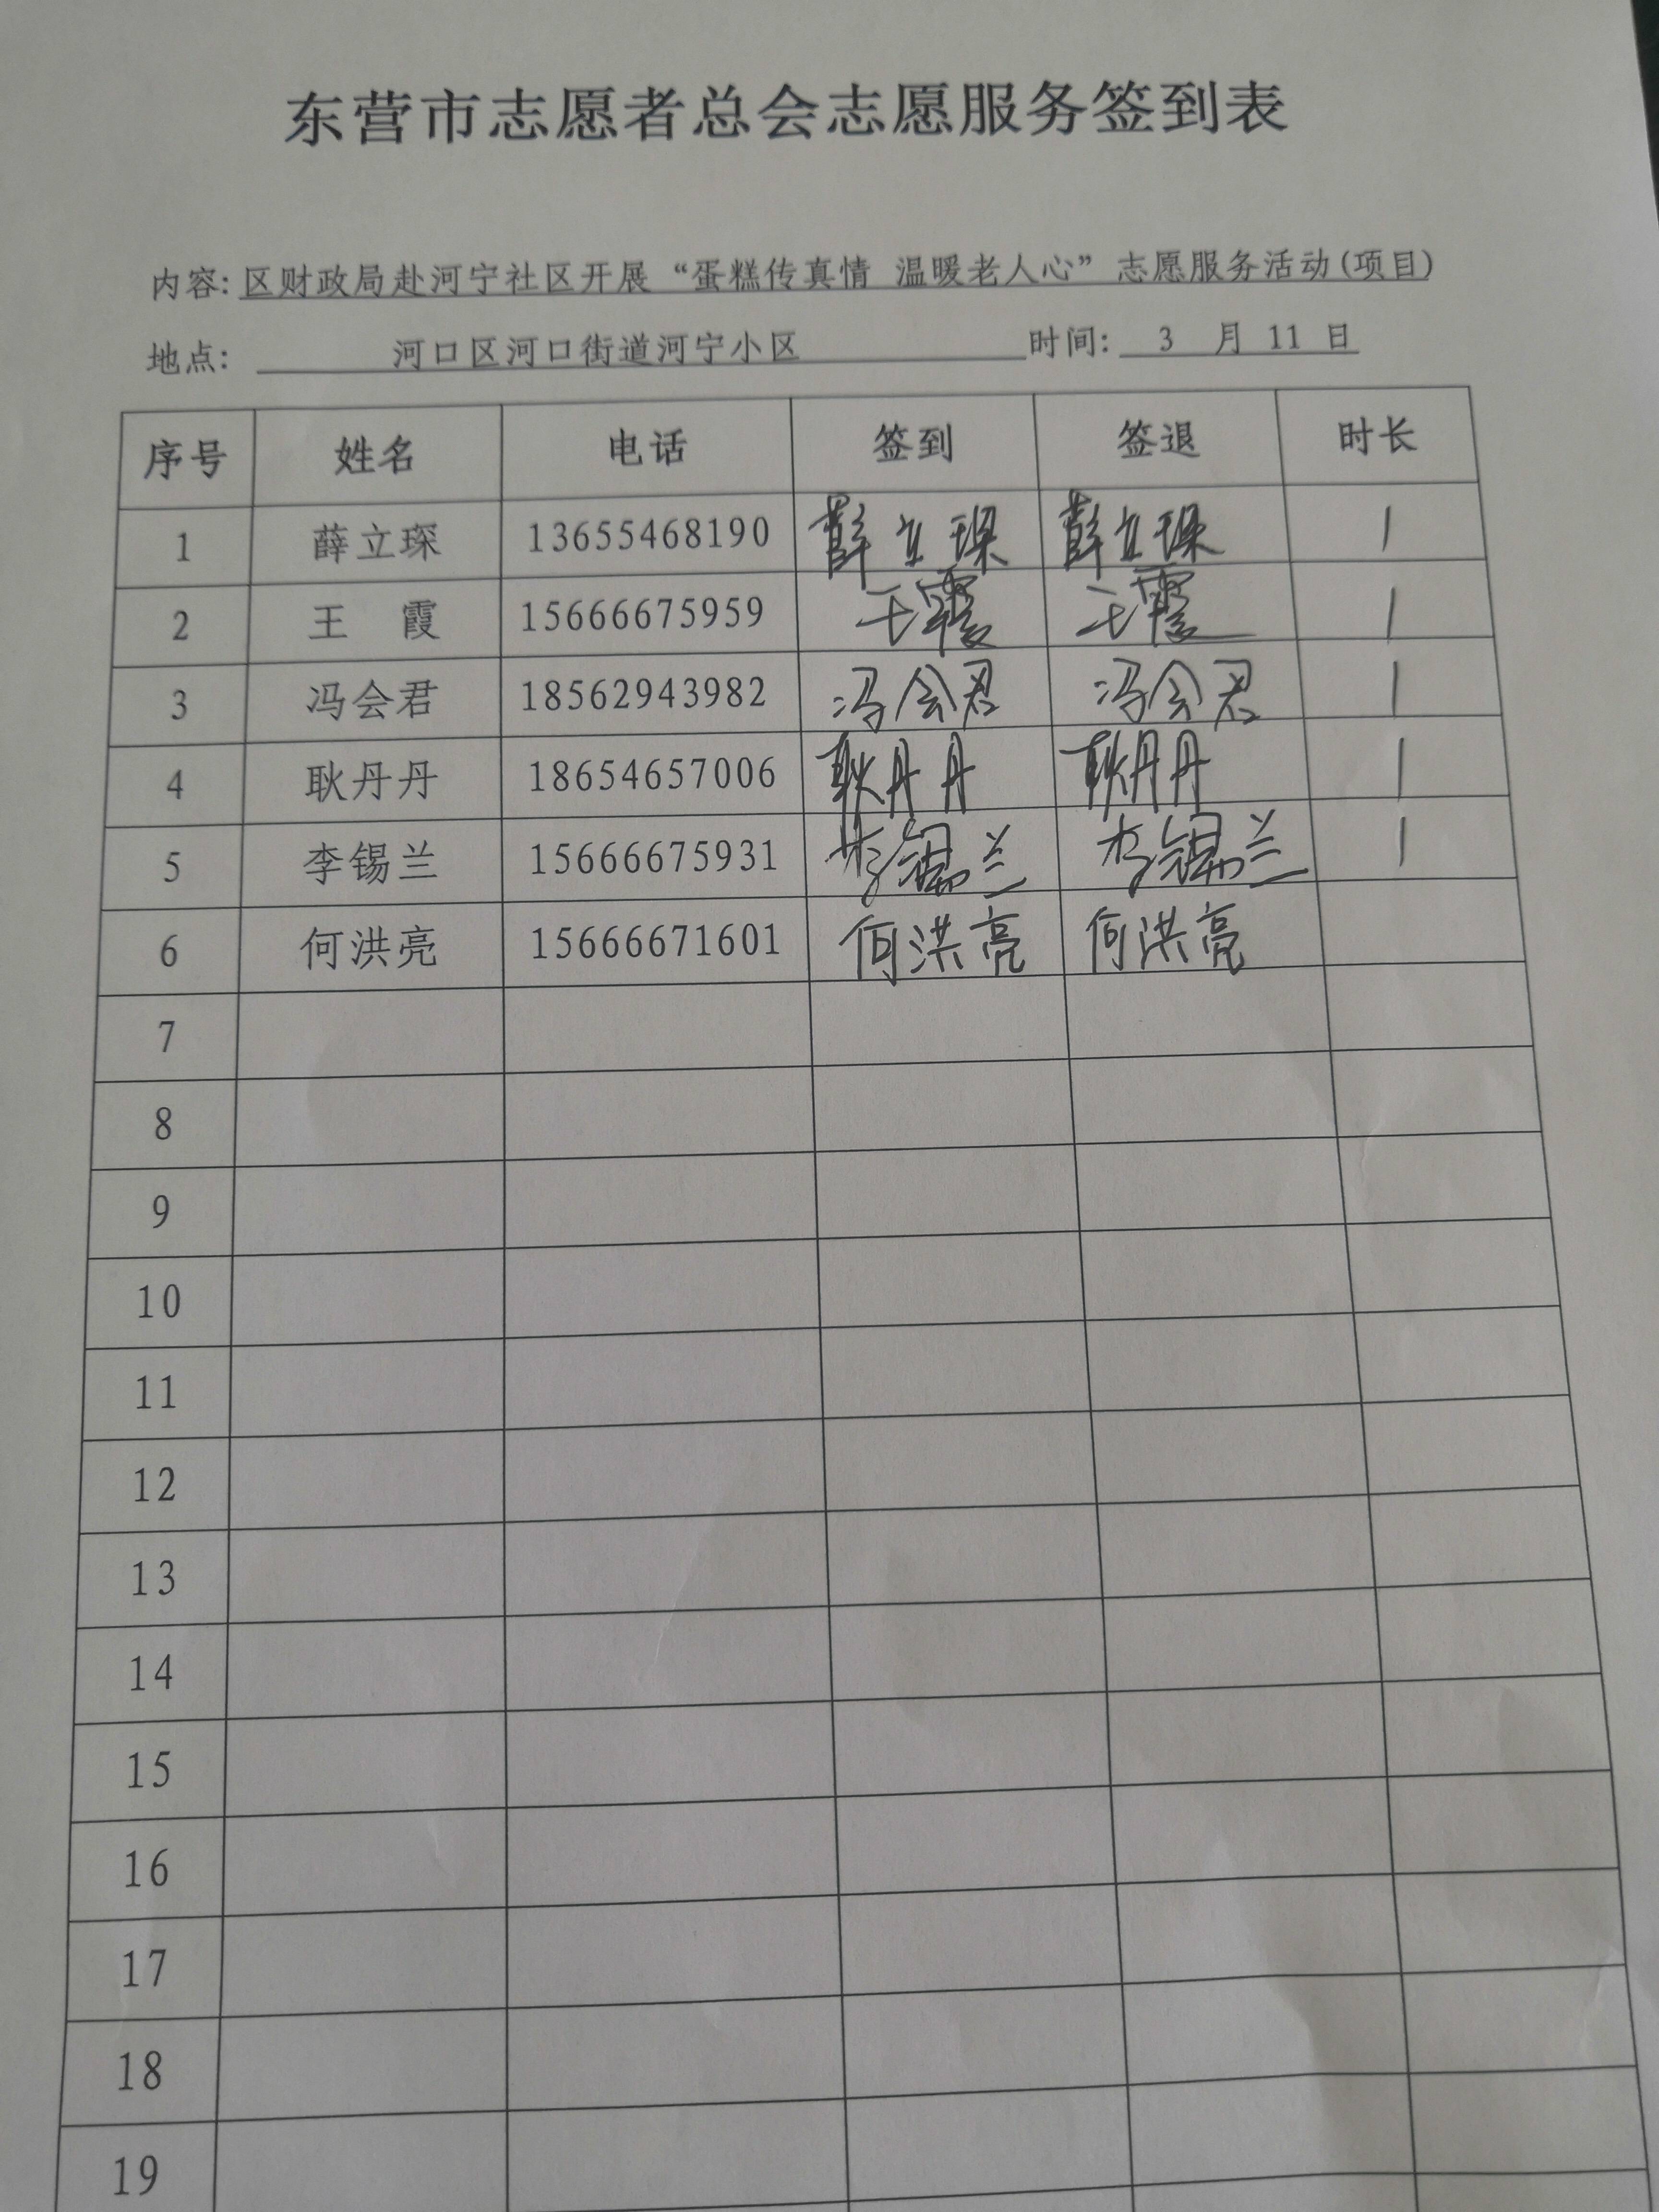 东营市志愿者总会志愿服务签到表
内容: 区财政局赴河宁社区开展“蛋糕传真情 温暖老人心”志愿服务活动(项目)
地点: 河口区河口街道河宁小区 时间: 3 月 11 日
序号 姓名 电话 签到 签退 时长
1 薛立琛 13655468190 薛立琛 薛立琛 1
2 王 霞 15666675959 王霞 王霞 1
3 冯会君 18562943982 冯会君 冯会君 1
4 耿丹丹 18654657006 耿丹丹 耿丹丹 1
5 李锡兰 15666675931 李锡兰 李锡兰 1
6 何洪亮 15666671601 何洪亮 何洪亮
7
8
9
10
11
12
13
14
15
16
17
18
19